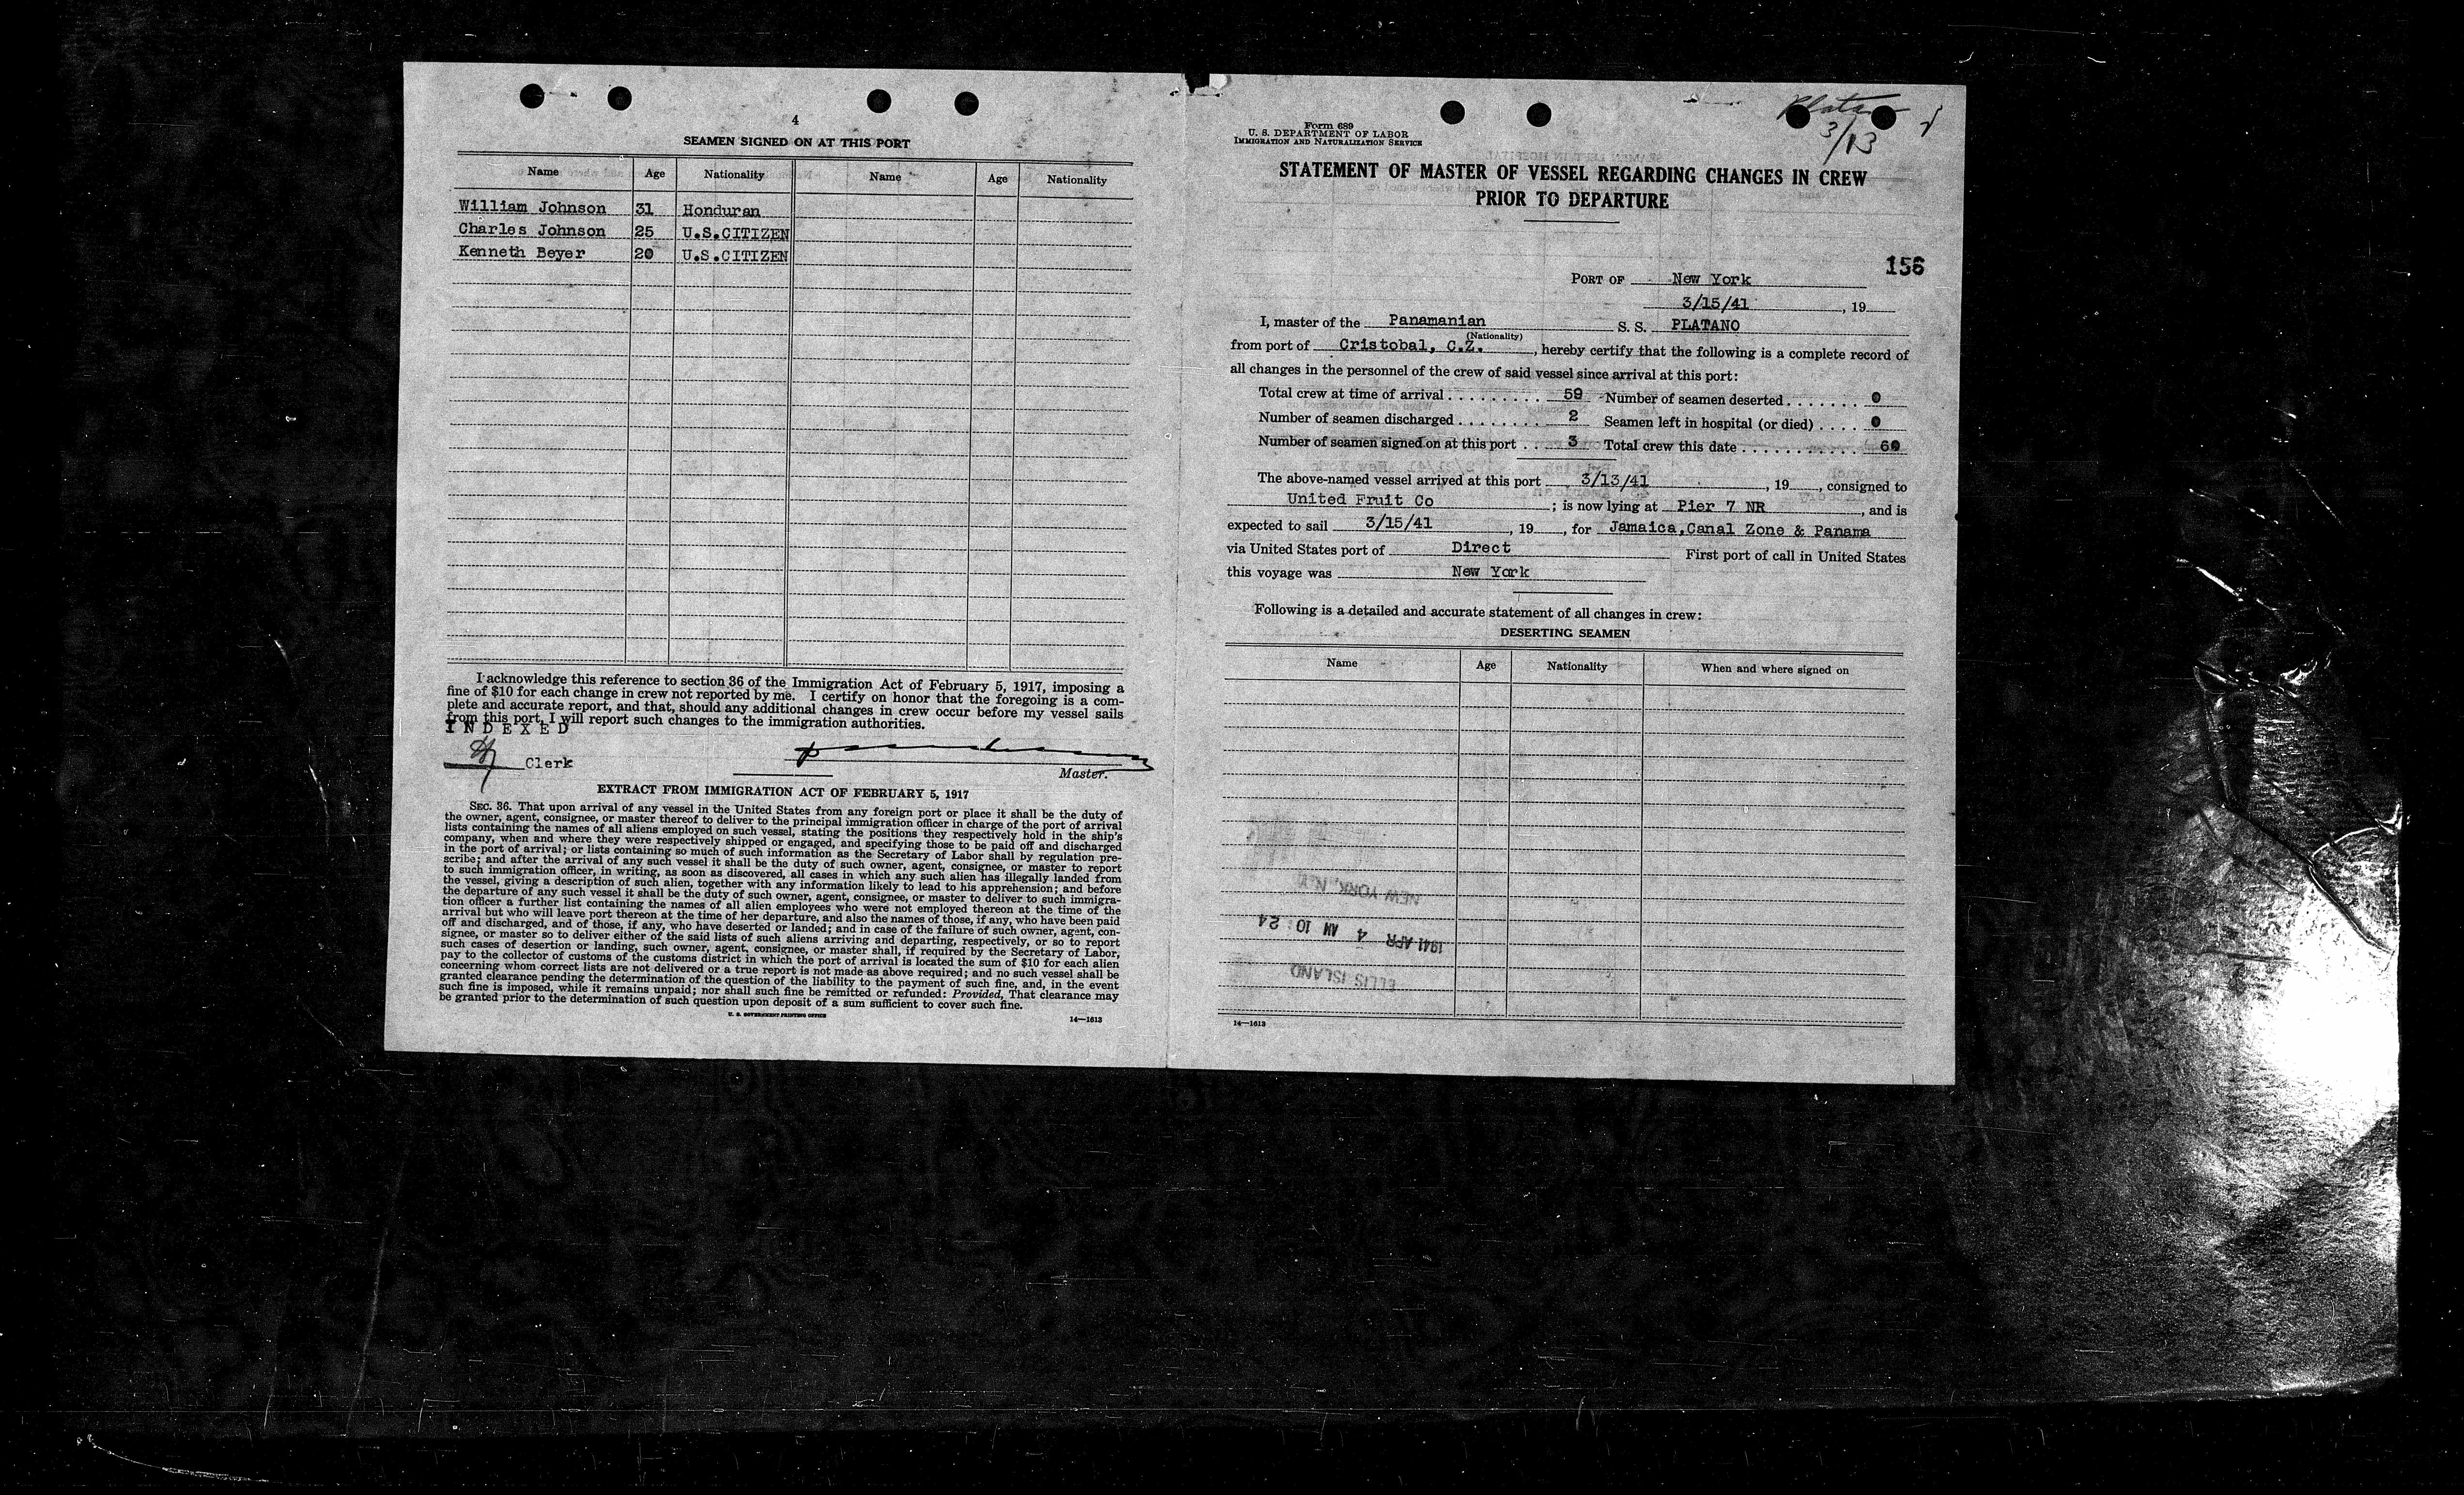 4
SEAMEN SIGNED ON AT THIS PORT
Name Age Nationality Name Age Nationality
William Johnson 31 Honduran
Charles Johnson 25 U.S.CITIZEN
Kenneth Beyer 20 U.S.CITIZEN
I acknowledge this reference to section 36 of the Immigration Act of February 5, 1917, imposing a
fine of $10 for each change in crew not reported by me. I certify on honor that the foregoing is a com-
plete and accurate report, and that, should any additional changes in crew occur before my vessel sails
from this port, I will report such changes to the immigration authorities.
INDEXED
Clerk
Master.
EXTRACT FROM IMMIGRATION ACT OF FEBRUARY 5, 1917
SEC. 36. That upon arrival of any vessel in the United States from any foreign port or place it shall be the duty of
the owner, agent, consignee, or master thereof to deliver to the principal immigration officer in charge of the port of arrival
lists containing the names of all aliens employed on such vessel, stating the positions they respectively hold in the ship's
company, when and where they were respectively shipped or engaged, and specifying those to be paid off and discharged
in the port of arrival; or lists containing so much of such information as the Secretary of Labor shall by regulation pre-
scribe; and after the arrival of any such vessel it shall be the duty of such owner, agent, consignee, or master to report
to such immigration officer, in writing, as soon as discovered, all cases in which any such alien has illegally landed from
the vessel, giving a description of such alien, together with any information likely to lead to his apprehension; and before
the departure of any such vessel it shall be the duty of such owner, agent, consignee, or master to deliver to such immigra-
tion officer a further list containing the names of all alien employees who were not employed thereon at the time of the
arrival but who will leave port thereon at the time of her departure, and also the names of those, if any, who have been paid
off and discharged, and of those, if any, who have deserted or landed; and in case of the failure of such owner, agent, con-
signee, or master so to deliver either of the said lists of such aliens arriving and departing, respectively, or so to report
such cases of desertion or landing, such owner, agent, consignee, or master shall, if required by the Secretary of Labor,
pay to the collector of customs of the customs district in which the port of arrival is located the sum of $10 for each alien
concerning whom correct lists are not delivered or a true report is not made as above required; and no such vessel shall be
granted clearance pending the determination of the question of the liability to the payment of such fine, and, in the event
such fine is imposed, while it remains unpaid; nor shall such fine be remitted or refunded: Provided, That clearance may
be granted prior to the determination of such question upon deposit of a sum sufficient to cover such fine.
U. S. GOVERNMENT PRINTING OFFICE
14—1613
Platano
3/13
Form 689
U. S. DEPARTMENT OF LABOR
IMMIGRATION AND NATURALIZATION SERVICE
STATEMENT OF MASTER OF VESSEL REGARDING CHANGES IN CREW
PRIOR TO DEPARTURE
156
PORT OF New York
3/15/41, 19
I, master of the Panamanian S. S. PLATANO
(Nationality)
from port of Cristobal, C.Z., hereby certify that the following is a complete record of
all changes in the personnel of the crew of said vessel since arrival at this port:
Total crew at time of arrival 59 Number of seamen deserted 0
Number of seamen discharged 2 Seamen left in hospital (or died) 0
Number of seamen signed on at this port 3 Total crew this date 60
The above-named vessel arrived at this port 3/13/41, 19, consigned to
United Fruit Co; is now lying at Pier 7 NR, and is
expected to sail 3/15/41, 19, for Jamaica,Canal Zone & Panama
via United States port of Direct First port of call in United States
this voyage was New York
Following is a detailed and accurate statement of all changes in crew:
DESERTING SEAMEN
Name Age Nationality When and where signed on
NEW YORK, N.Y.
1941 APR 4 AM 10 24
ELLIS ISLAND
14—1613